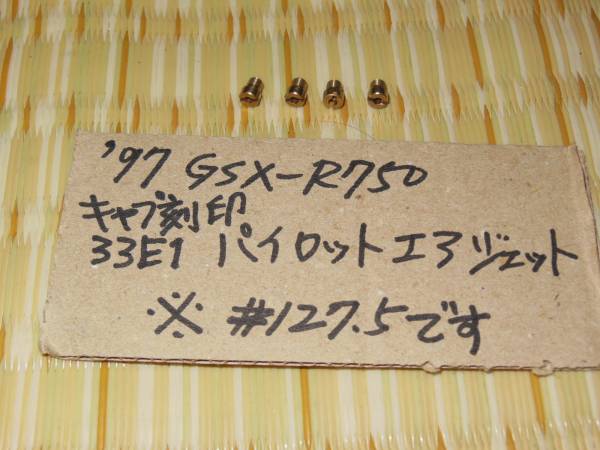 '97 GSX-R750
キャブ刻印
33E1 パイロットエアジェット
※ #127.5です